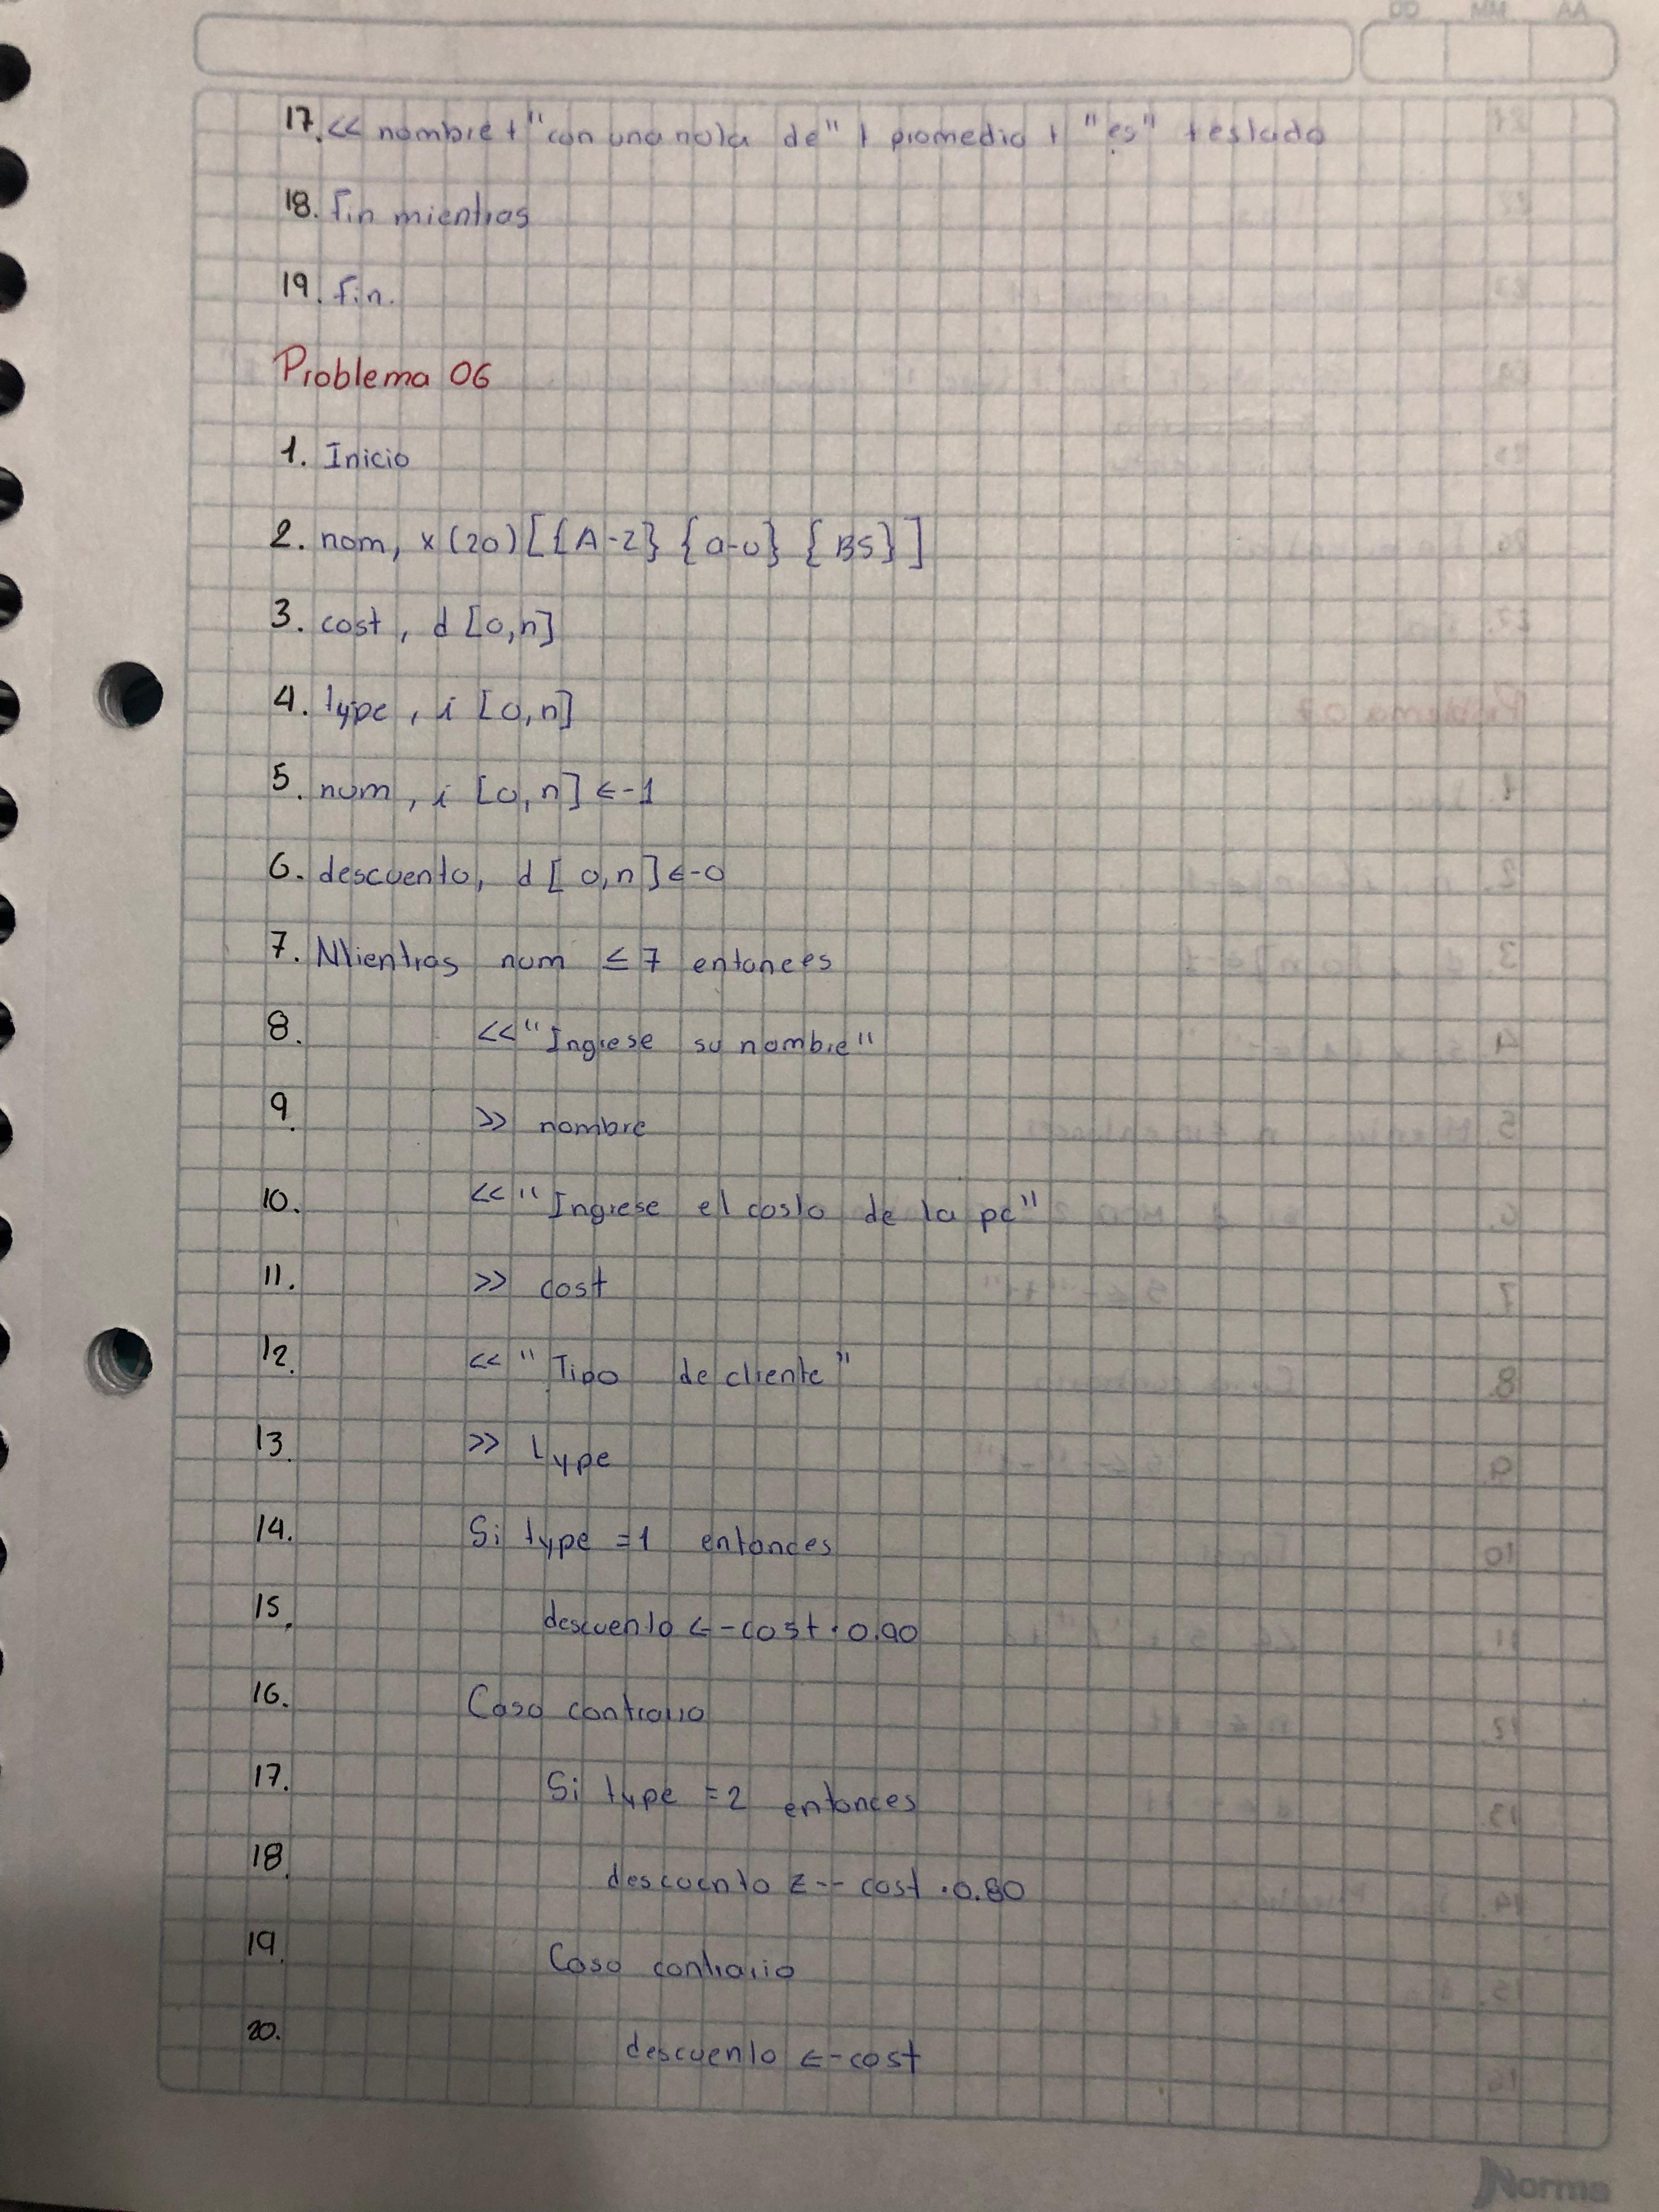 DD MM AA
17. << nombre + "con una nota de" + promedio + "es" + estado
18. fin mientras
19. fin.
Problema 06
1. Inicio
2. nom, x (20) [{A-Z} {a-u} {BS}]
3. cost, d [0,n]
4. type, i [0,n]
5. num, i [0,n] <-1
6. descuento, d [0,n] <-0
7. Mientras num ≤ 7 entonces
8. << "Ingrese su nombre"
9. >> nombre
10. << "Ingrese el costo de la pc"
11. >> cost
12. << "Tipo de cliente"
13. >> type
14. Si type = 1 entonces
15. descuento <- cost · 0.90
16. Caso contrario
17. Si type = 2 entonces
18. descuento <-- cost · 0.80
19. Caso contrario
20. descuento <- cost
Norma